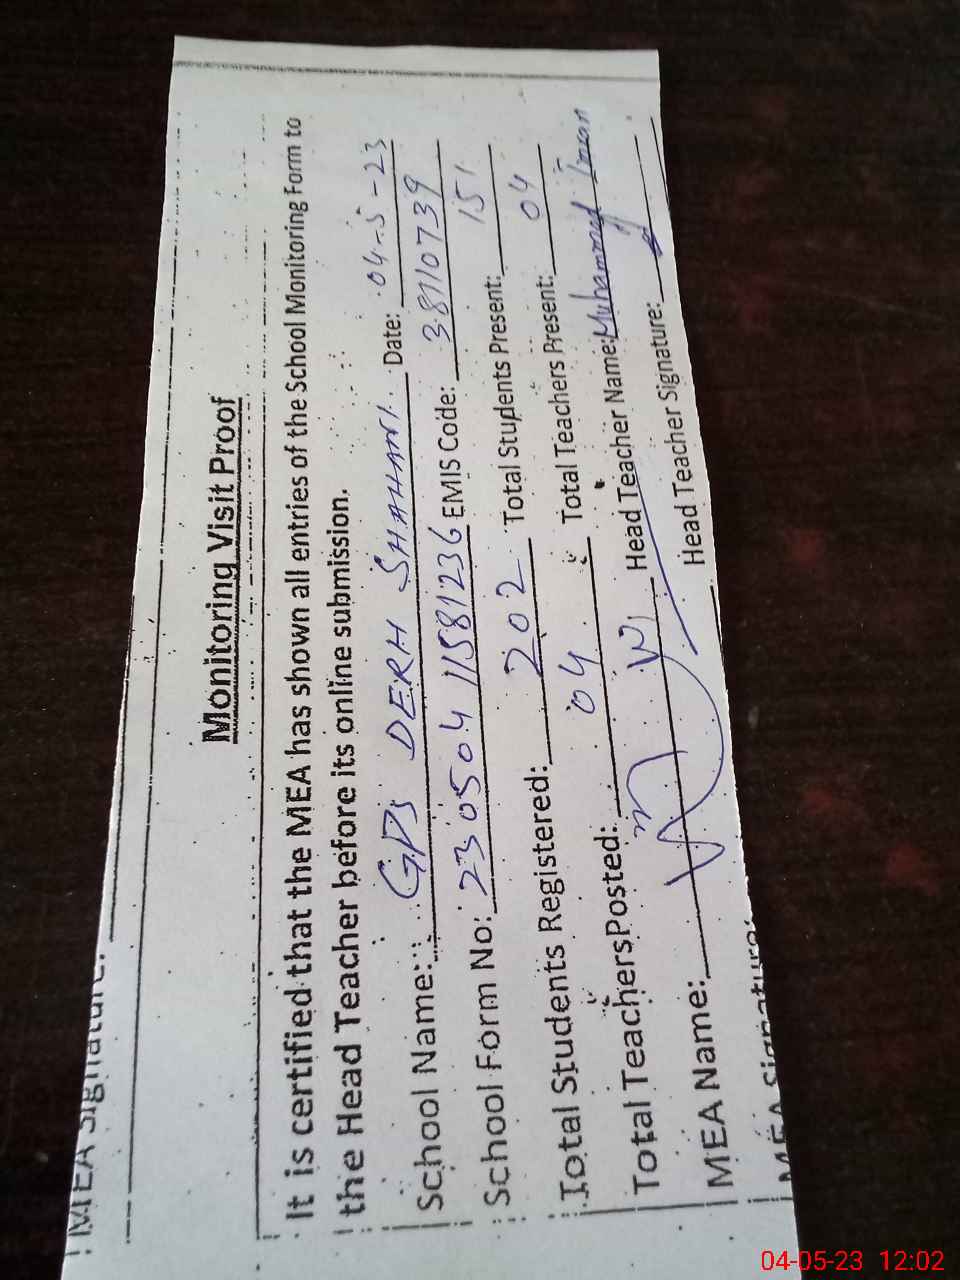 MEA Signature:
Monitoring Visit Proof
It is certified that the MEA has shown all entries of the School Monitoring Form to
the Head Teacher before its online submission.
School Name: GPS DERH SHAHANI Date: 04-5-23
School Form No: 230504 11581236 EMIS Code: 38110739
Total Students Registered: 202 Total Students Present: 151
Total Teachers Posted: 04 Total Teachers Present: 04
MEA Name: Head Teacher Name: Muhammad Imran
MEA Signature: Head Teacher Signature:
04-05-23 12:02